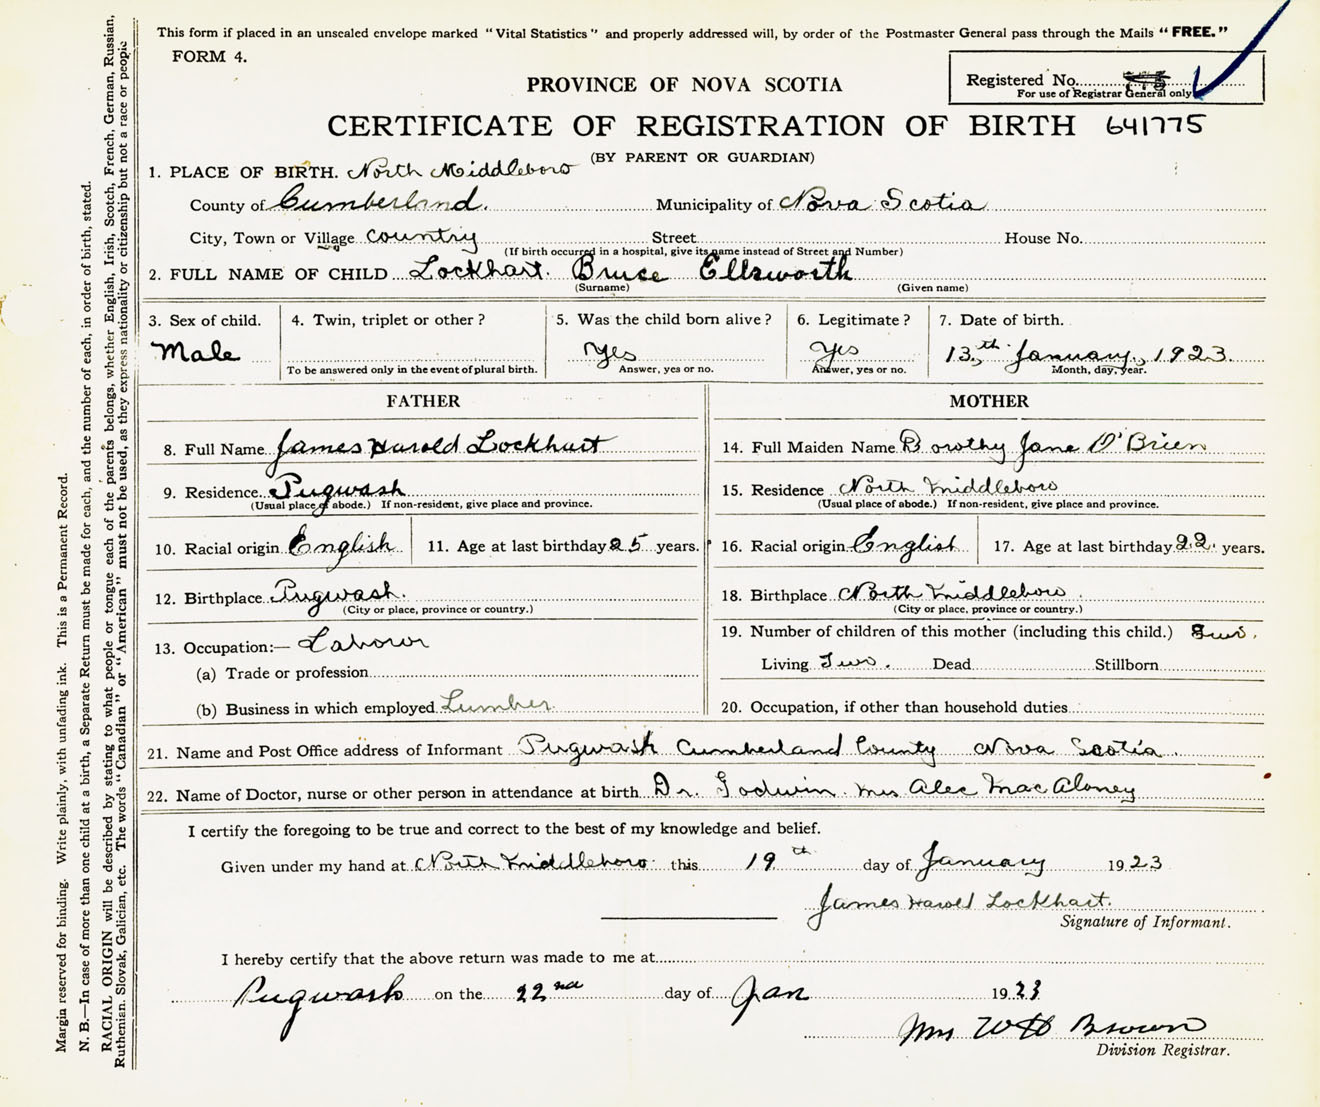 This form if placed in an unsealed envelope marked "Vital Statistics" and properly addressed will, by order of the Postmaster General pass through the Mails "FREE."
FORM 4.
PROVINCE OF NOVA SCOTIA
Registered No.
For use of Registrar General only
CERTIFICATE OF REGISTRATION OF BIRTH 641775
(BY PARENT OR GUARDIAN)
1. PLACE OF BIRTH. North Middleboro
County of Cumberland. Municipality of Nova Scotia
City, Town or Village country Street House No.
(If birth occurred in a hospital, give its name instead of Street and Number)
2. FULL NAME OF CHILD Lockhart. Bruce Ellsworth
(Surname) (Given name)
3. Sex of child. 4. Twin, triplet or other? 5. Was the child born alive? 6. Legitimate? 7. Date of birth.
Male Yes Yes 13th January, 1923.
To be answered only in the event of plural birth. Answer, yes or no. Answer, yes or no. Month, day, year.
FATHER MOTHER
8. Full Name James Harold Lockhart 14. Full Maiden Name Dorothy Jane O'Brien
9. Residence Pugwash 15. Residence North Middleboro
(Usual place of abode.) If non-resident, give place and province. (Usual place of abode.) If non-resident, give place and province.
10. Racial origin English 11. Age at last birthday 25 years. 16. Racial origin English 17. Age at last birthday 22 years.
12. Birthplace Pugwash. 18. Birthplace North Middleboro
(City or place, province or country.) (City or place, province or country.)
13. Occupation:— Labour 19. Number of children of this mother (including this child.) Two.
(a) Trade or profession Living Two. Dead Stillborn
(b) Business in which employed Lumber 20. Occupation, if other than household duties
21. Name and Post Office address of Informant Pugwash Cumberland County Nova Scotia.
22. Name of Doctor, nurse or other person in attendance at birth Dr. Godwin. Mrs Alec MacAloney
I certify the foregoing to be true and correct to the best of my knowledge and belief.
Given under my hand at North Middleboro this 19th day of January 1923
James Harold Lockhart.
Signature of Informant.
I hereby certify that the above return was made to me at
Pugwash on the 22nd day of Jan 1923
Mrs W H Brown
Division Registrar.
Margin reserved for binding. Write plainly, with unfading ink. This is a Permanent Record.
N. B.—In case of more than one child at a birth, a Separate Return must be made for each, and the number of each, in order of birth, stated.
RACIAL ORIGIN will be described by stating to what people or tongue each of the parents belongs, whether English, Irish, Scotch, French, German, Russian,
Ruthenian, Slovak, Galician, etc. The words "Canadian" or "American" must not be used, as they express nationality or citizenship but not a race or people